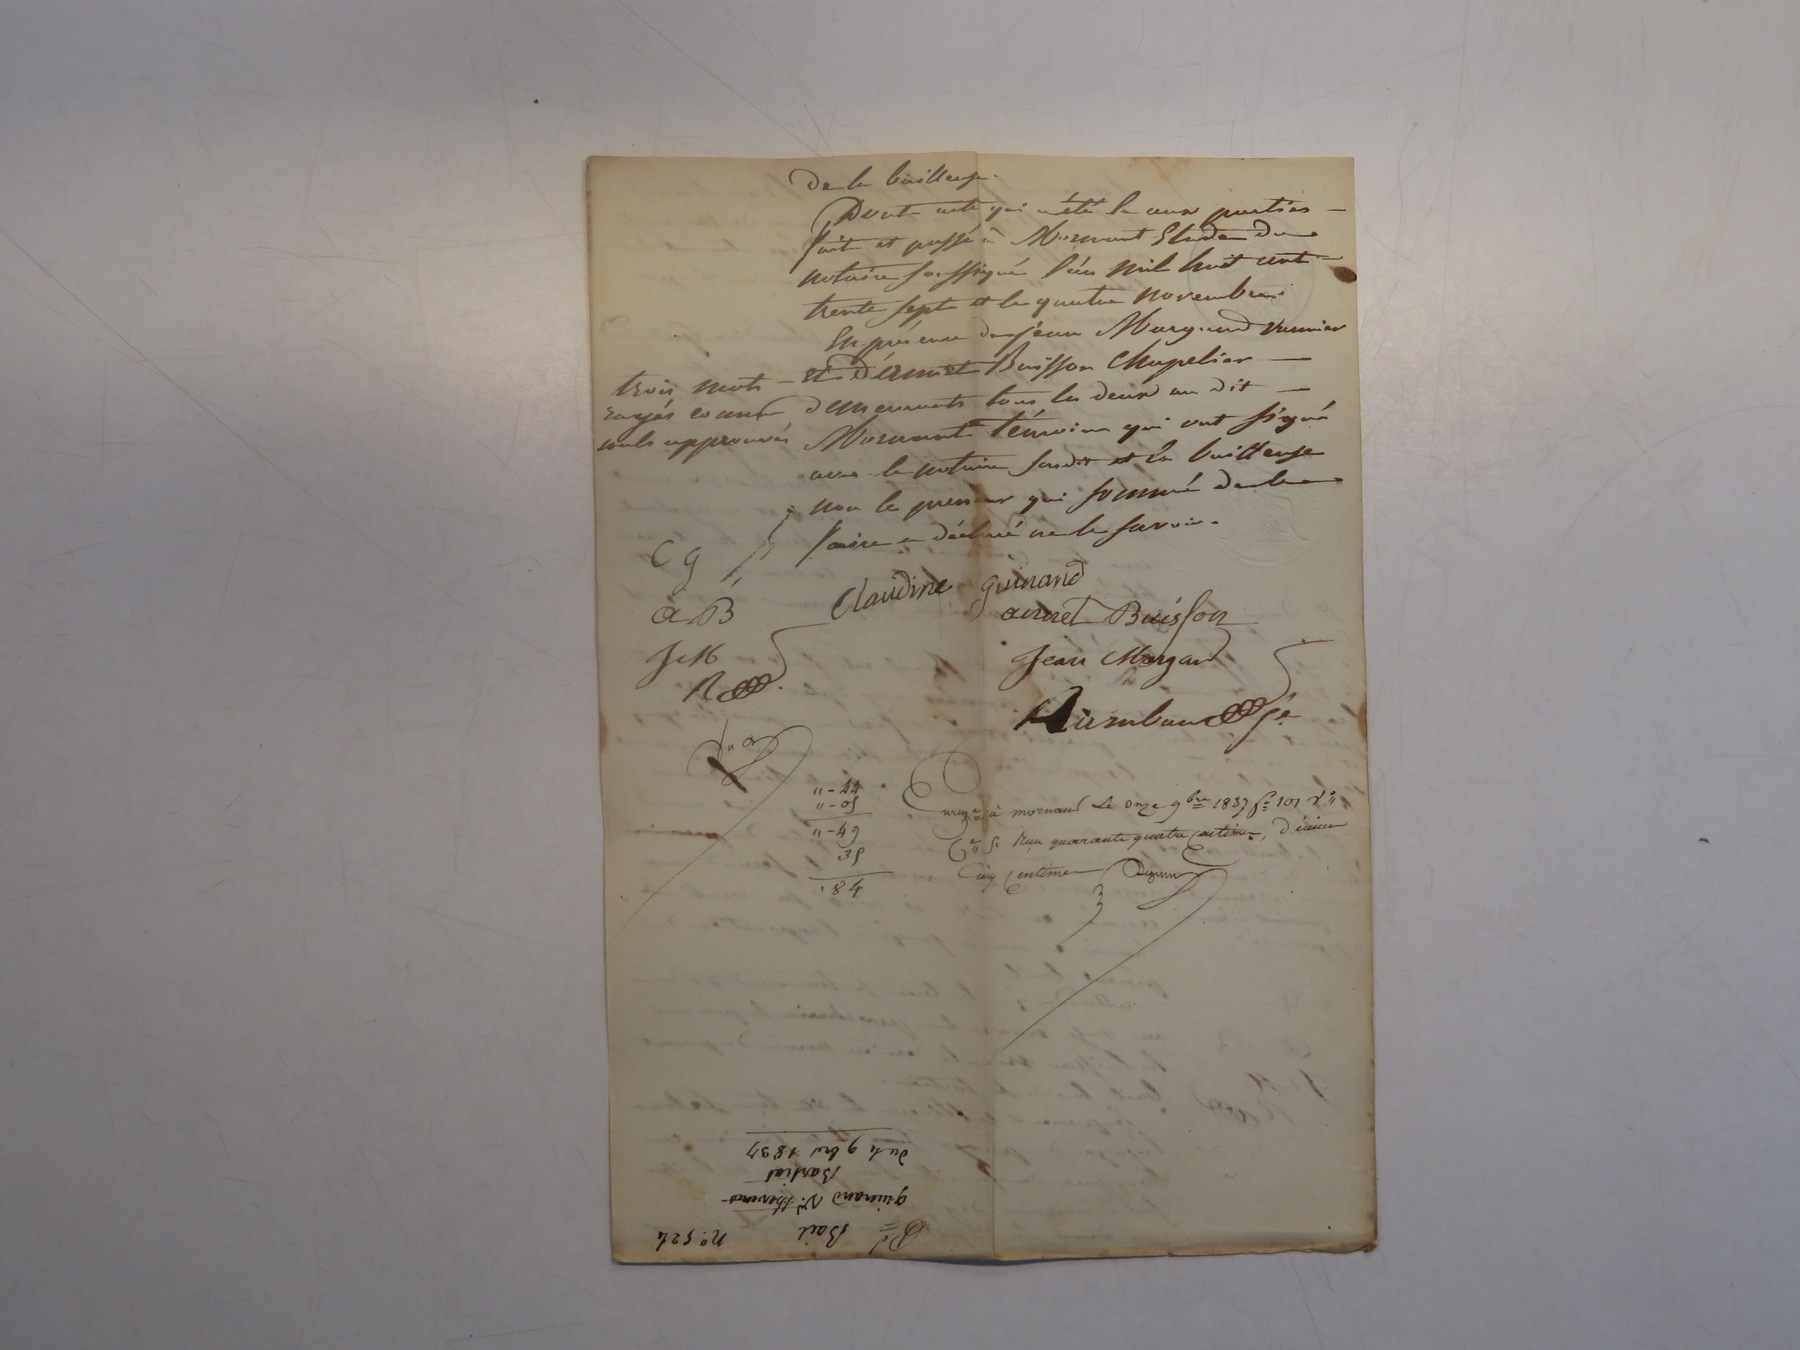 de la bailleuse.
Dont acte qui a été lu aux parties
fait et passé à Mornant Etude du
notaire soussigné l'an mil huit cent
trente sept et le quatre novembre.
En présence de Jean Margand vannier
et Dernnet Buisson Chapelier
demeurants tous les deux au dit
Mornant témoins qui ont signé
avec le notaire susdit et la bailleuse
non le preneur qui sommé de le
faire a déclaré ne le savoir.
trois mots
rayés comme
nuls approuvés
C g
a B
J M
R
Claudine guinand
annet Buisson
Jean Margand
44
50
94
35
Enreg.é à mornant Le onze 9bre 1837 f.° 101 V.°
C.e 5. Reçu quarante quatre centimes, Décime
Cinq centimes
n°. 524
Bail
guinand V.e
du 4 9bre 1837